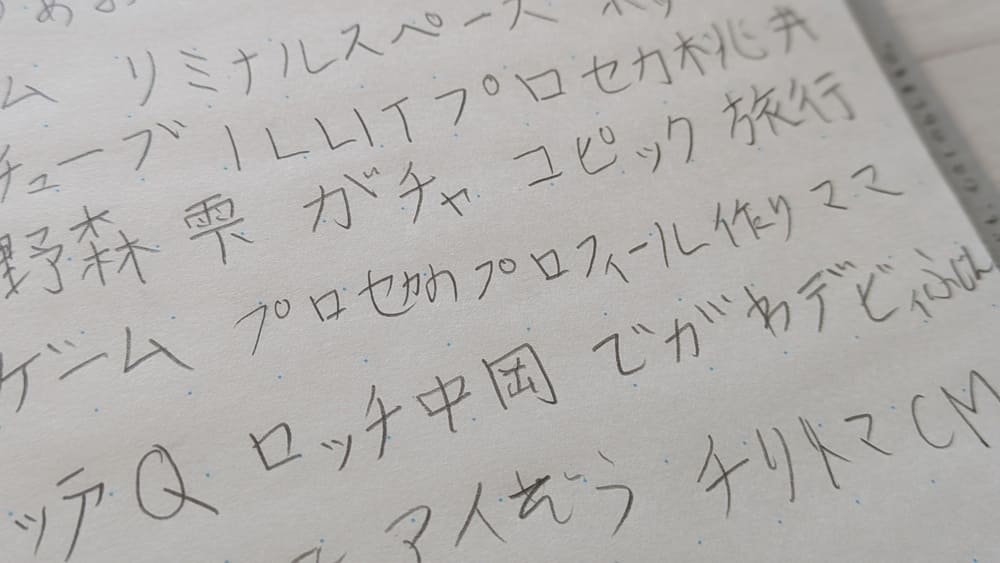 ム リミナルスペース
チューブ ILLIT プロセカ 桃井
野森 雫 ガチャ コピック 旅行
ゲーム プロセカのプロフィール作り ママ
ッテQ ロッチ中岡 でがわ デビィふじん
アイぞう チリトマ CM